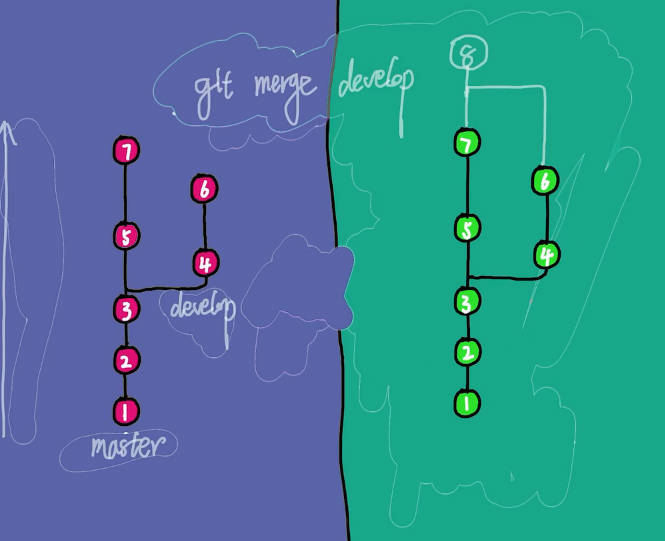 git merge develop
8
7
6
5
4
develop
3
2
1
master
7
6
5
4
3
2
1